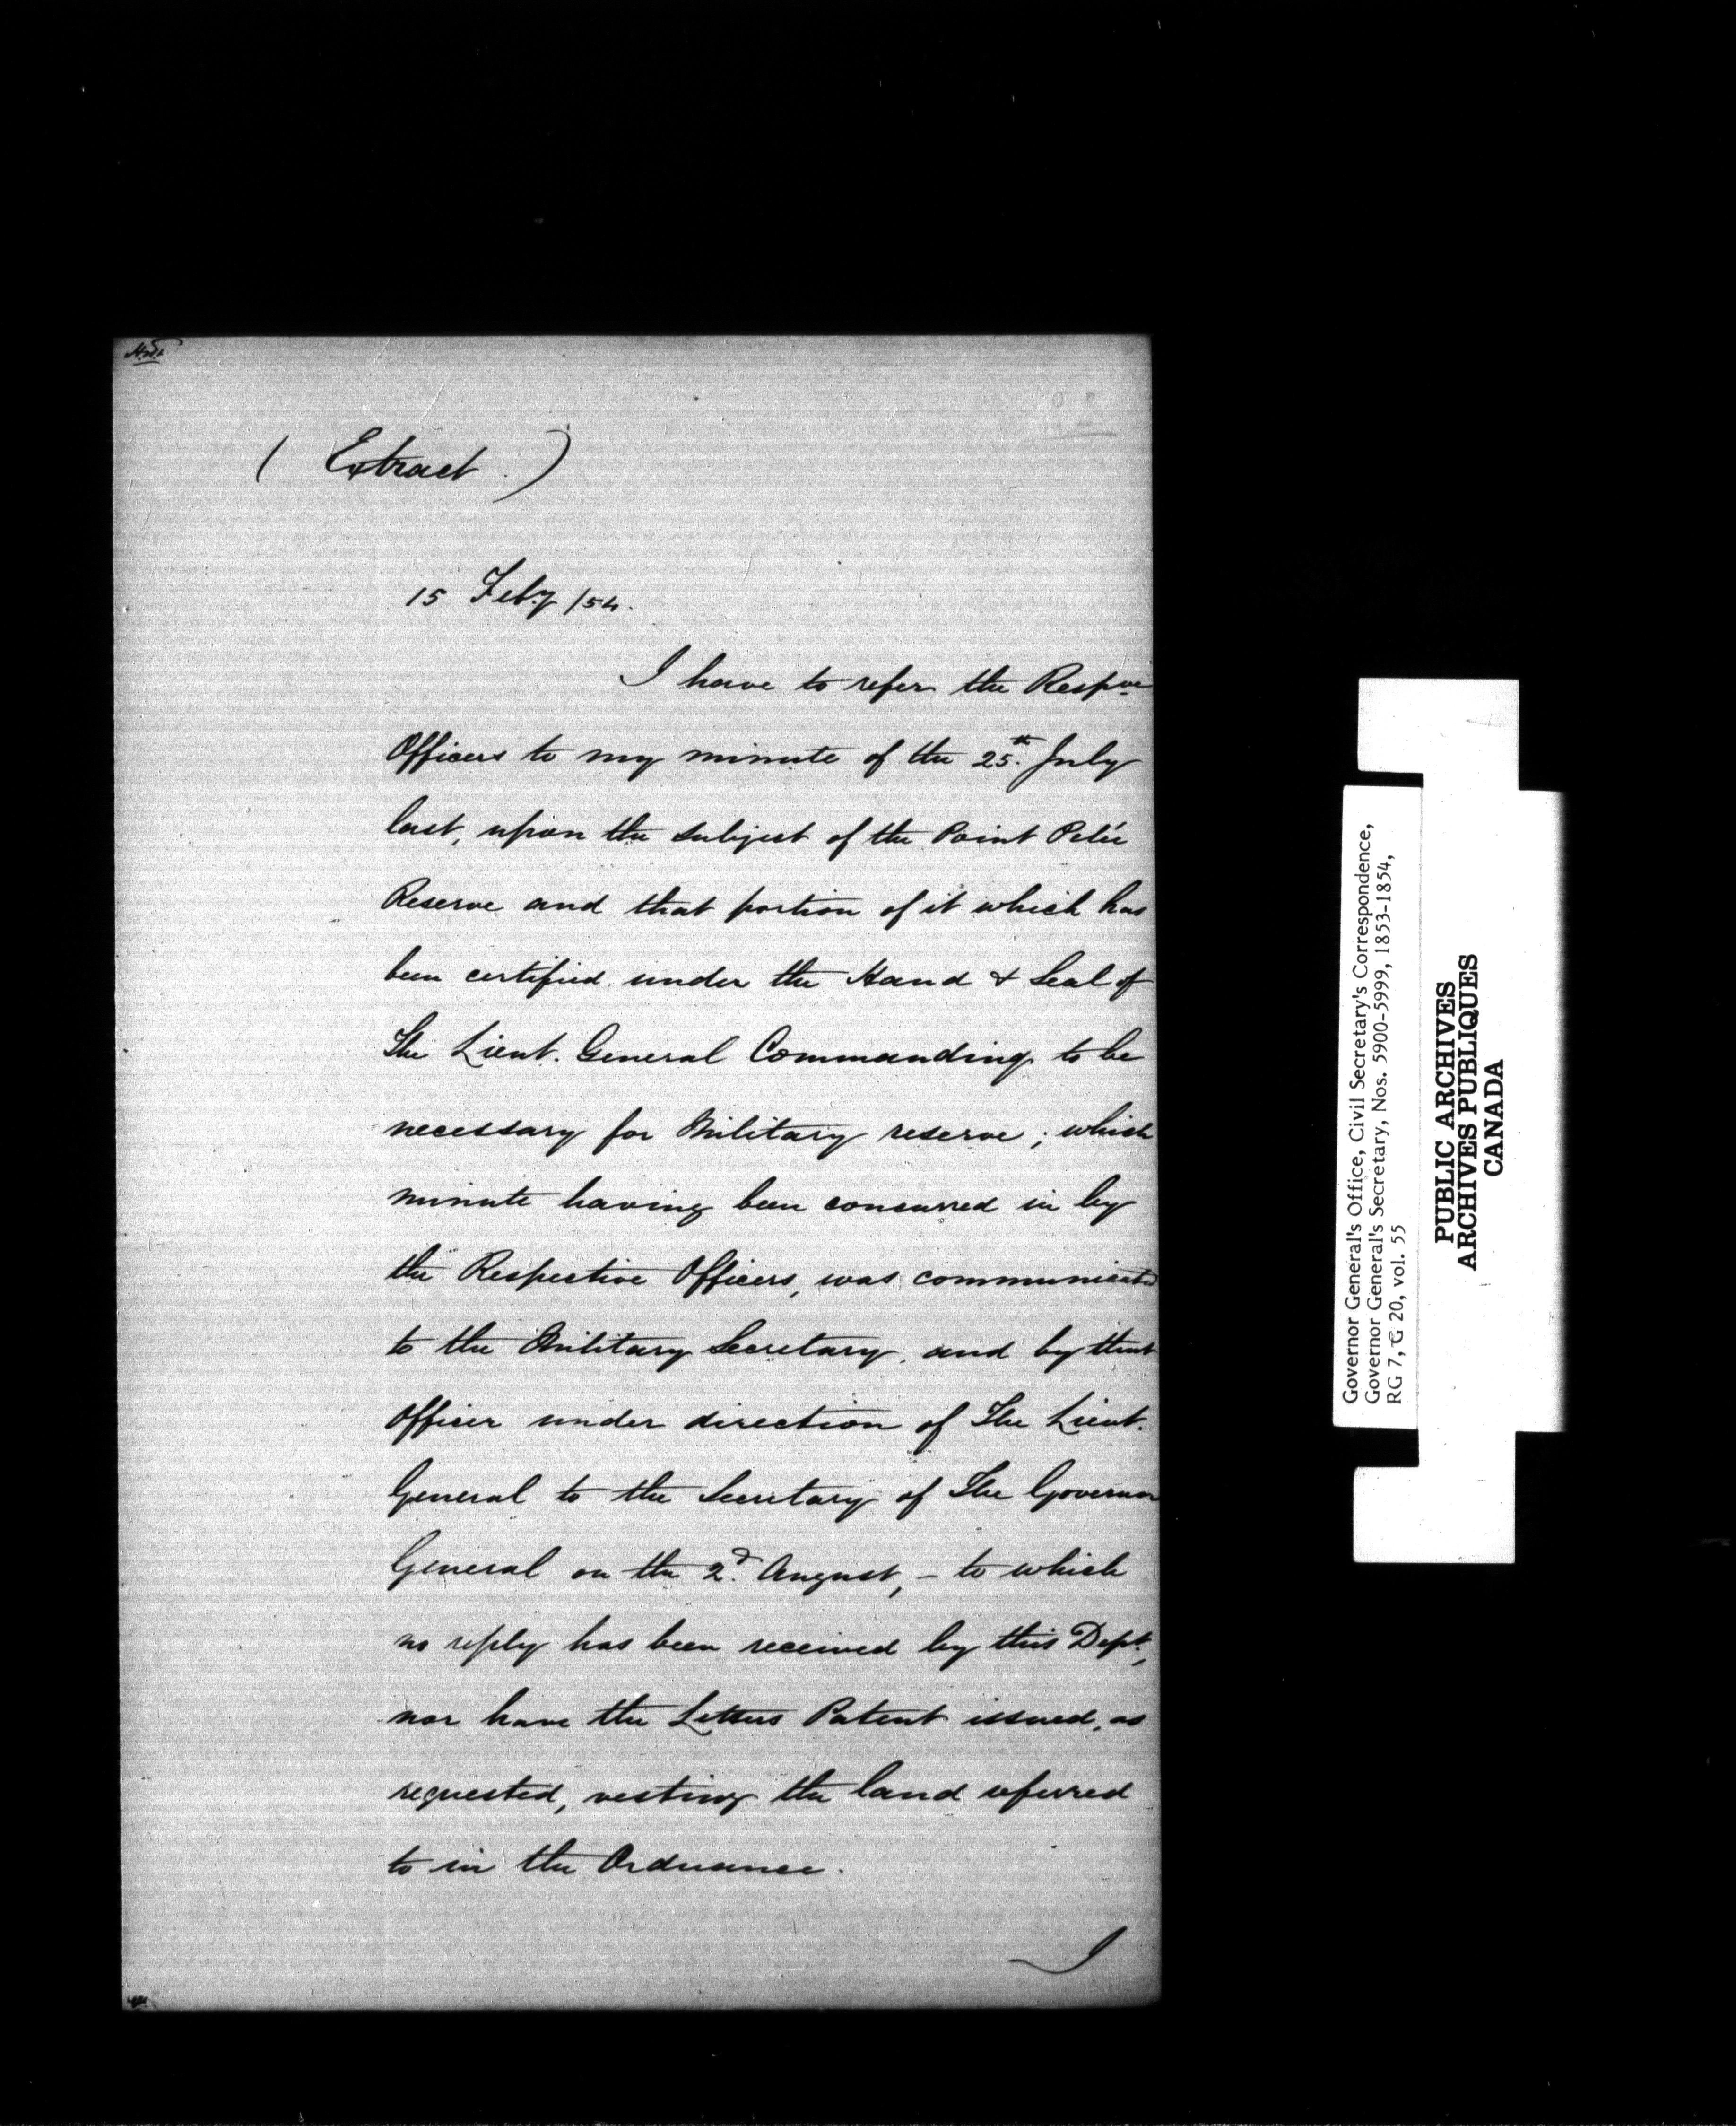 ( Extract. )
15 Feby /54.
I have to refer the Respve
Officers to my minute of the 25th July
last, upon the subject of the Point Pelée
Reserve and that portion of it which has
been certified under the Hand & Seal of
The Lieut. General Commanding to be
necessary for Military reserve; which
minute having been concurred in by
the Respective Officers, was communicated
to the Military Secretary, and by that
Officer under direction of The Lieut.
General to the Secretary of The Governor
General on the 2d August, – to which
no reply has been received by this Dept.,
nor have the Letters Patent issued, as
requested, vesting the land referred
to in the Ordnance.
I
Governor General's Office, Civil Secretary's Correspondence,
Governor General's Secretary, Nos. 5900-5999, 1853-1854,
RG 7, G 20, vol. 55
PUBLIC ARCHIVES
ARCHIVES PUBLIQUES
CANADA